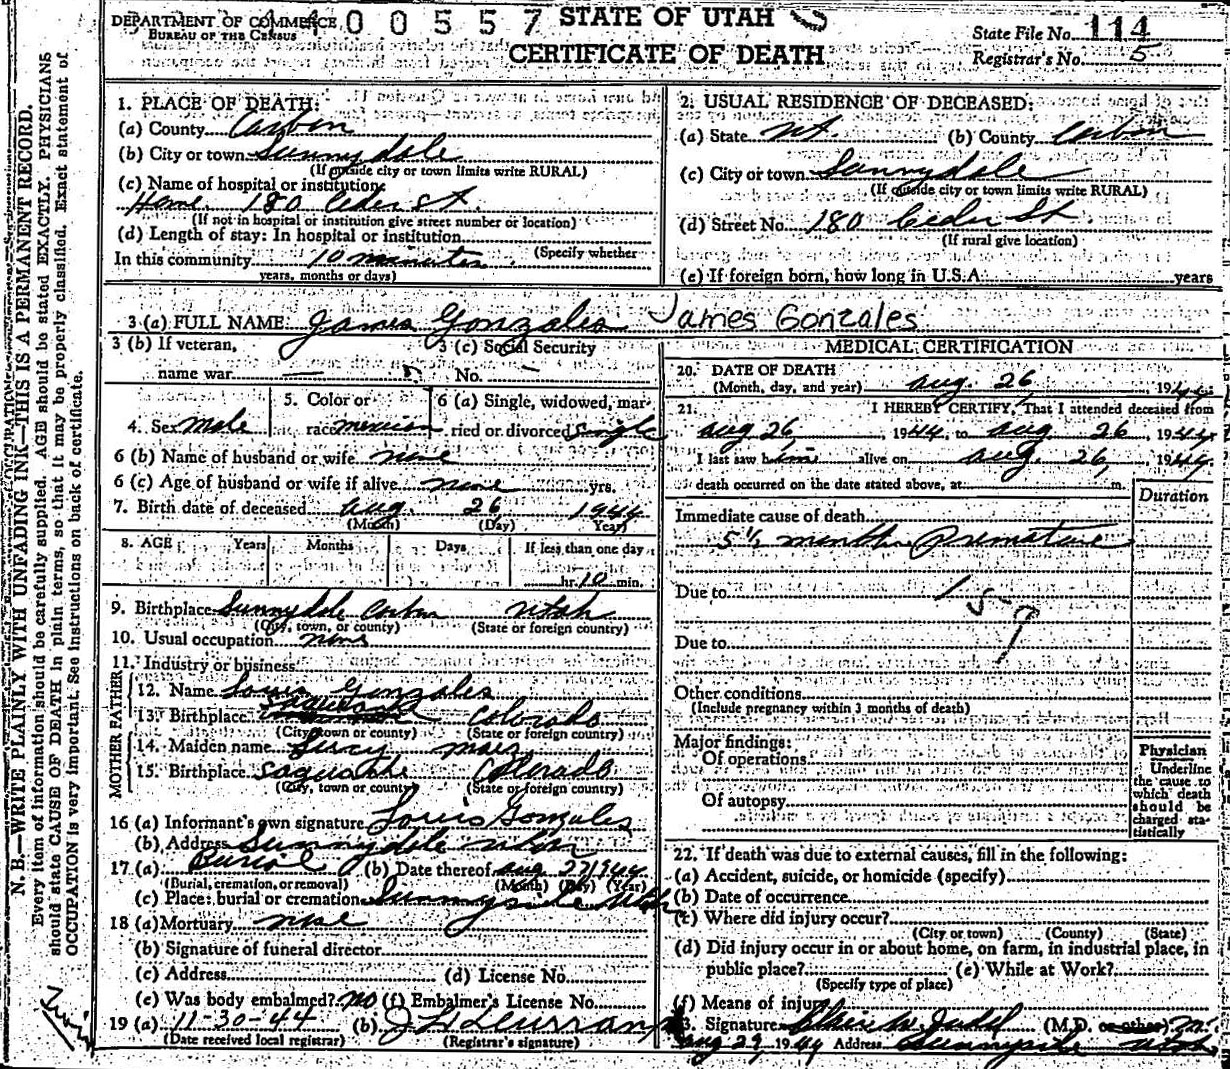 4400557
DEPARTMENT OF COMMERCE
BUREAU OF THE CENSUS
STATE OF UTAH
CERTIFICATE OF DEATH
State File No. 114
Registrar's No. 5
N. B.—WRITE PLAINLY WITH UNFADING INK—THIS IS A PERMANENT RECORD.
Every item of information should be carefully supplied. AGE should be stated EXACTLY. PHYSICIANS
should state CAUSE OF DEATH in plain terms, so that it may be properly classified. Exact statement of
OCCUPATION is very important. See instructions on back of certificate.
1. PLACE OF DEATH:
(a) County Carbon
(b) City or town Sunnydale
(If outside city or town limits write RURAL)
(c) Name of hospital or institution:
Home 180 Ceder St.
(If not in hospital or institution give street number or location)
(d) Length of stay: In hospital or institution
(Specify whether
In this community 10 minutes
years, months or days)
2. USUAL RESIDENCE OF DECEASED:
(a) State Ut. (b) County Carbon
(c) City or town Sunnydale
(If outside city or town limits write RURAL)
(d) Street No. 180 Ceder St
(If rural give location)
(e) If foreign born, how long in U.S.A. years
3 (a) FULL NAME James Gonzales James Gonzales
3 (b) If veteran,
name war —
3 (c) Social Security
No. —
4. Sex Male
5. Color or
race mexican
6 (a) Single, widowed, mar-
ried or divorced Single
6 (b) Name of husband or wife none
6 (c) Age of husband or wife if alive none yrs.
7. Birth date of deceased Aug. 26 1944
(Month) (Day) Year)
8. AGE Years Months Days If less than one day
hr. 10 min.
9. Birthplace Sunnydale Carbon Utah
(City, town, or county) (State or foreign country)
10. Usual occupation none
11. Industry or business
FATHER
12. Name Louis Gonzales
13. Birthplace Saguache Colorado
(City, town or county) (State or foreign country)
MOTHER
14. Maiden name Lucy Maez
15. Birthplace Saguache Colorado
(City, town or county) (State or foreign country)
16 (a) Informant's own signature Louis Gonzales
(b) Address Sunnydale Utah
17 (a) Burial (b) Date thereof Aug 27 1944
(Burial, cremation, or removal) (Month) (Day) (Year)
(c) Place: burial or cremation Sunnyside Utah
18 (a) Mortuary none
(b) Signature of funeral director
(c) Address (d) License No.
(e) Was body embalmed? no (f) Embalmer's License No.
19 (a) 11-30-44 (b)
(Date received local registrar) (Registrar's signature)
MEDICAL CERTIFICATION
20. DATE OF DEATH
(Month, day, and year) Aug. 26, 1944
21. I HEREBY CERTIFY, That I attended deceased from
Aug 26, 1944, to Aug 26, 1944
I last saw him alive on Aug. 26, 1944
death occurred on the date stated above, at m.
Duration
Immediate cause of death
5½ months Premature
Due to
159
Due to
Other conditions
(Include pregnancy within 3 months of death)
Major findings:
Of operations
Of autopsy
Physician
Underline
the cause to
which death
should be
charged sta-
tistically
22. If death was due to external causes, fill in the following:
(a) Accident, suicide, or homicide (specify)
(b) Date of occurrence
(c) Where did injury occur?
(City or town) (County) (State)
(d) Did injury occur in or about home, on farm, in industrial place, in
public place? (e) While at Work?
(Specify type of place)
(f) Means of injury
23. Signature (M.D. or other)
Aug 29, 1944 Address Sunnyside Utah